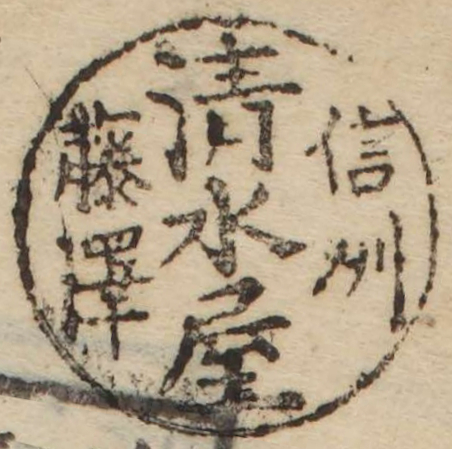 信州
清水屋
藤澤